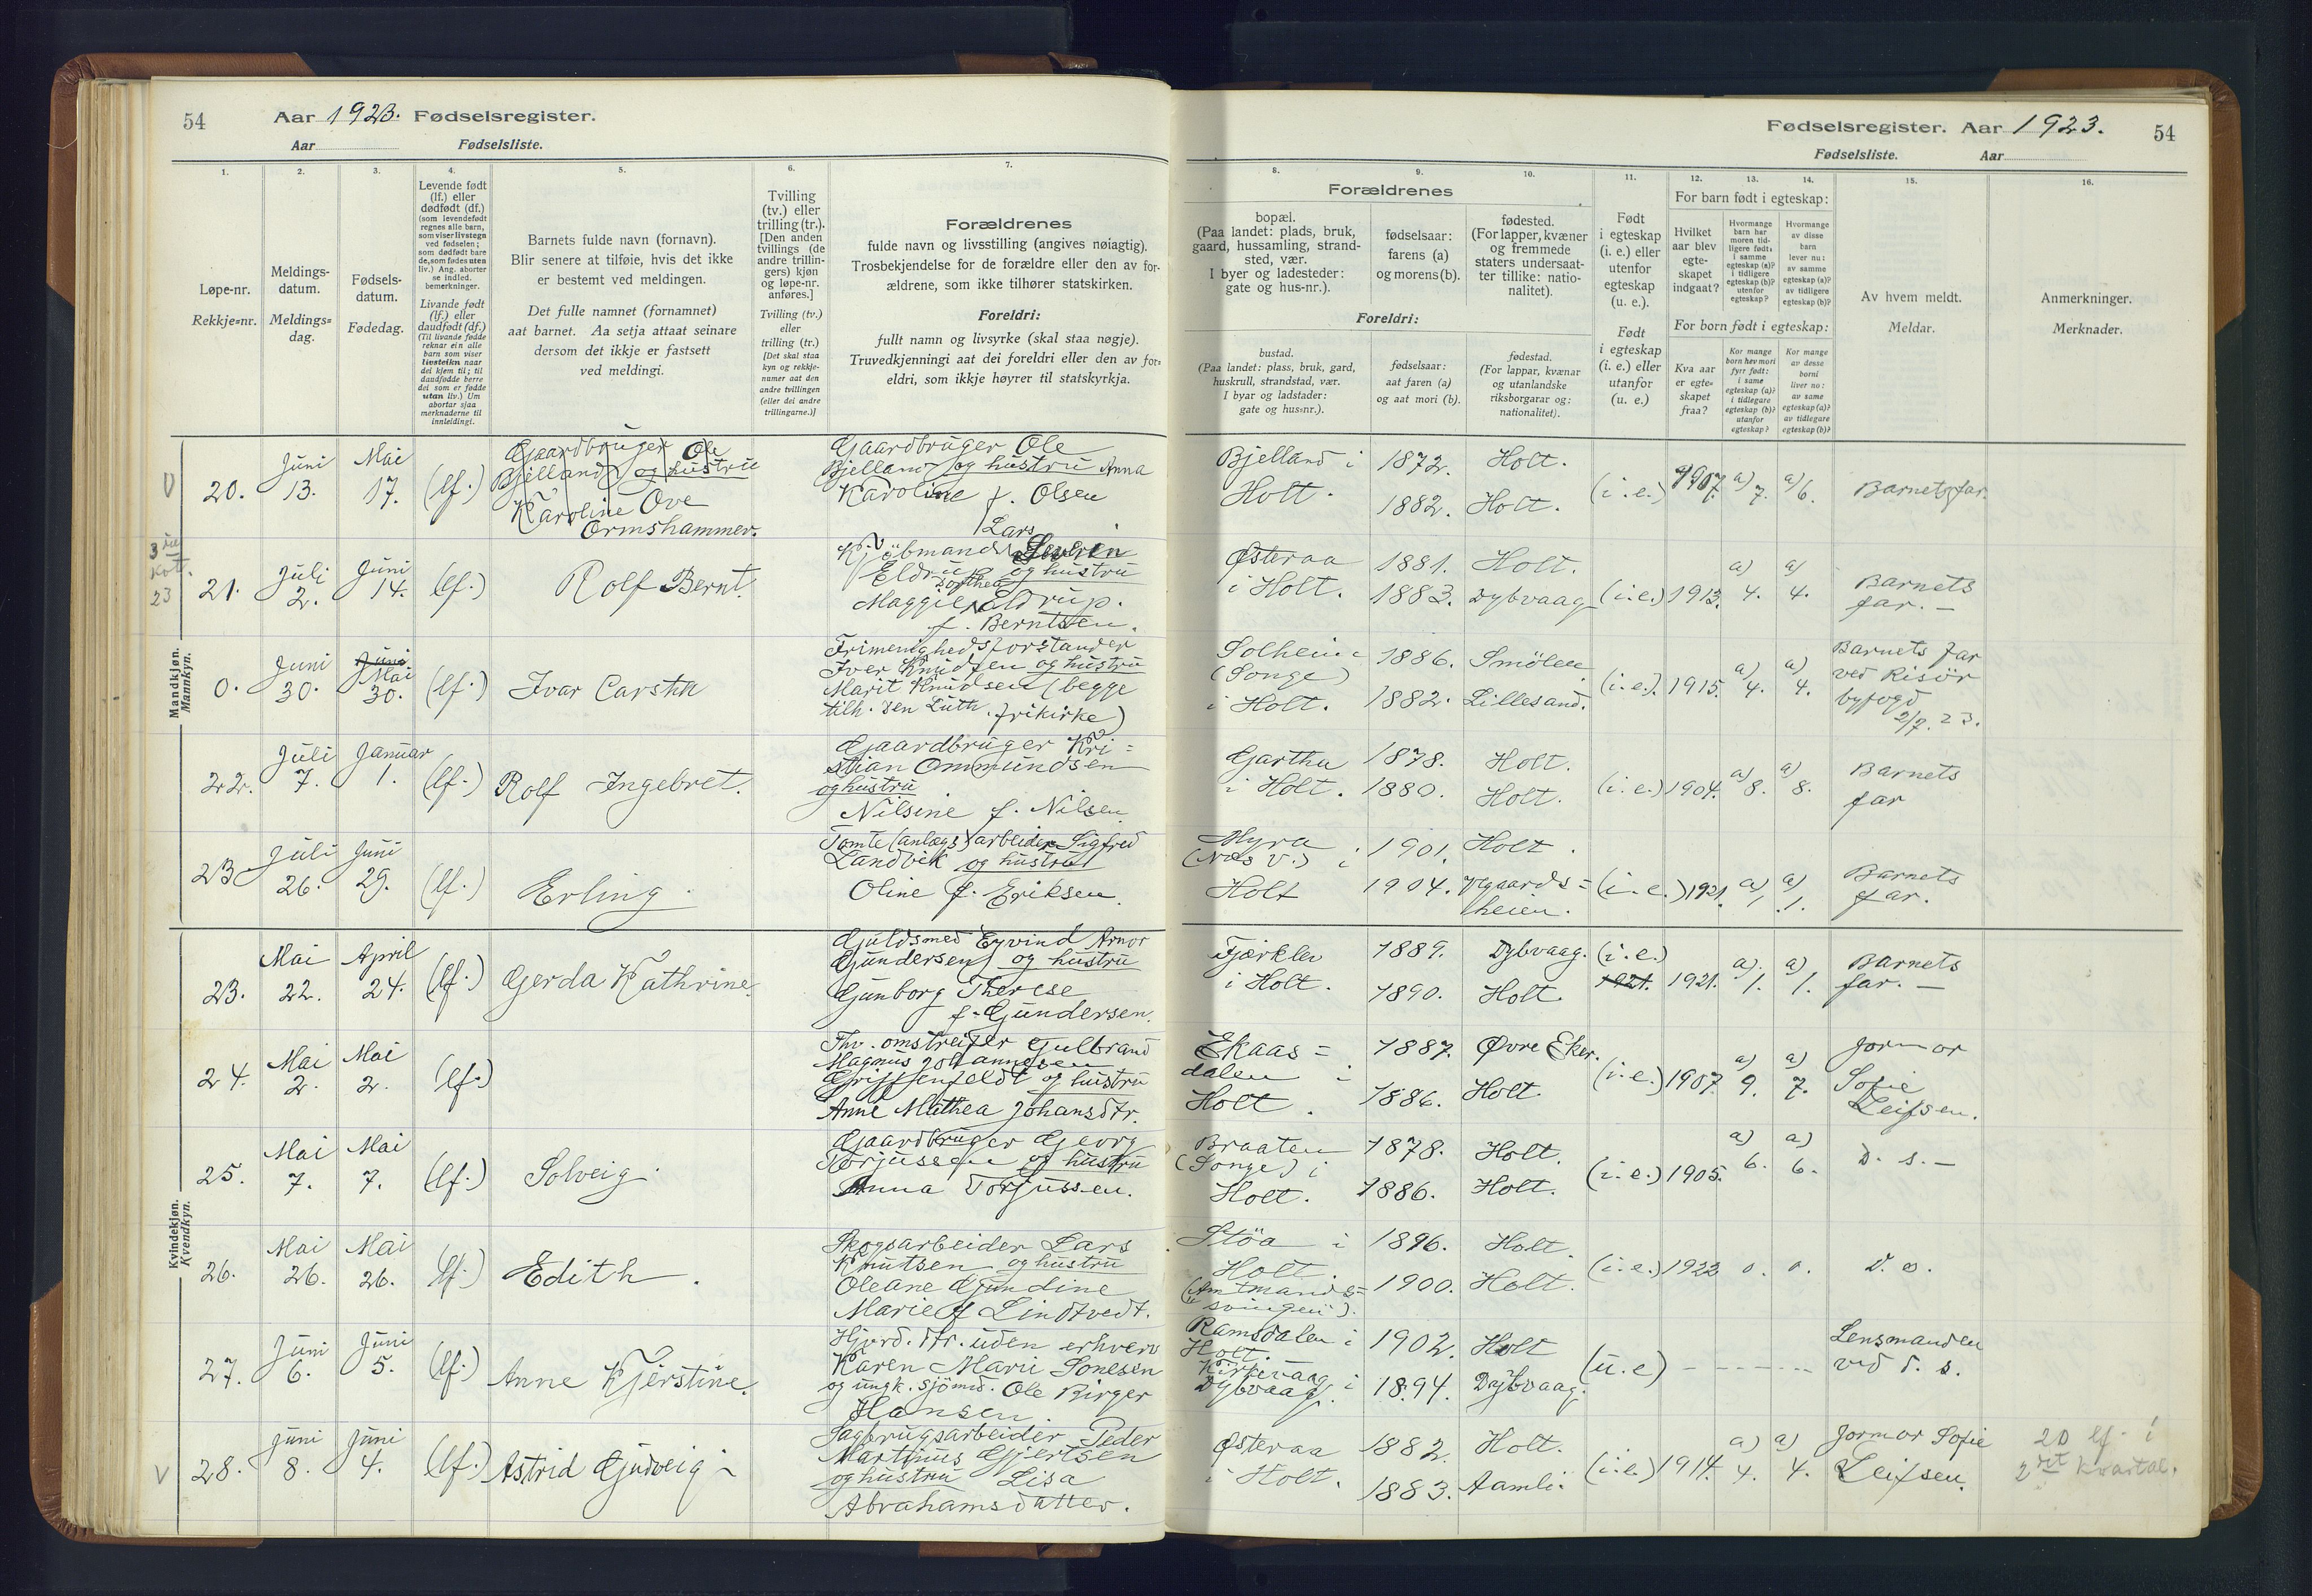 54
Aar 1923. Fødselsregister.
Aar Fødselsliste.
Fødselsregister. Aar 1923. 54
Fødselsliste. Aar
1. 2. 3. 4. 5. 6. 7.
Løpe-nr.
Rekkje=nr.
Meldings-
datum.
Meldings=
dag.
Fødsels-
datum.
Fødedag.
Levende født
(lf.) eller
dødfødt (df.)
(som levendefødt
regnes alle barn,
som viser livstegn
ved fødselen;
som dødfødt bare
de, som fødes uten
liv.) Ang. aborter
se indled.
bemerkninger.
Livande født
(lf.) eller
daudfødt (df.)
(Til livande fødde
reknar ein alle
barn som viser
livsteikn naar
dei kjem til; til
daudfødde berre
dei som er fødde
utan liv.) Um
abortar sjaa
merknaderne til
innleidingi.
Barnets fulde navn (fornavn).
Blir senere at tilføie, hvis det ikke
er bestemt ved meldingen.
Det fulle namnet (fornamnet)
aat barnet. Aa setja attaat seinare
dersom det ikkje er fastsett
ved meldingi.
Tvilling
(tv.) eller
trilling (tr.).
[Den anden
tvillings (de
andre trillin-
gers) kjøn
og løpe-nr.
anføres.]
Tvilling (tv.)
eller
trilling (tr.)
[Det skal staa
kyn og rekkje-
numer aat den
andre tvillingen
(eller dei andre
trillingarne.)]
Forældrenes
fulde navn og livsstilling (angives nøiagtig).
Trosbekjendelse for de forældre eller den av for-
ældrene, som ikke tilhører statskirken.
Foreldri:
fullt namn og livsyrke (skal staa nøgje).
Truvedkjenningi aat dei foreldri eller den av for-
eldri, som ikkje høyrer til statskyrkja.
8. 9. 10. 11. 12. 13. 14. 15. 16.
Forældrenes
bopæl.
(Paa landet: plads, bruk,
gaard, hussamling, strand-
sted, vær.
I byer og ladesteder:
gate og hus-nr.).
fødselsaar:
farens (a)
og morens (b).
fødested.
(For lapper, kvæner
og fremmede
staters undersaat-
ter tillike: natio-
nalitet).
Foreldri:
bustad.
(Paa landet: plass, bruk, gard,
huskrull, strandstad, vær.
I byar og ladstader:
gate og hus=nr.).
fødselsaar:
aat faren (a)
og aat mori (b).
fødestad.
(For lappar, kvænar
og utanlandske
riksborgarar og:
nationalitet).
Født
i egteskap
(i. e.) eller
utenfor
egteskap
(u. e.).
Født
i egteskap
(i. e.) eller
utanfor
egteskap
(u. e.)
For barn født i egteskap:
Hvilket
aar blev
egte-
skapet
indgaat?
Hvormange
barn har
moren tid-
ligere født:
i samme
egteskap (a)?
i tidligere
egteskap (b)?
utenfor
egteskap?
Hvormange
av disse
barn
lever nu:
av samme
egteskap (a)?
av tidligere
egteskap (b)?
For born født i egteskap:
Kva aar
er egte=
skapet
fraa?
Kor mange
born hev mori
fyrr født:
i same
egteskap (a)?
i tidlegare
egteskap (b)?
utanfor
egteskap?
Kor mange
av desse
borni
liver no:
av same
egteskap (a)?
av tidlegare
egteskap (b)?
Av hvem meldt.
Meldar.
Anmerkninger.
Merknader.
Mandkjøn.
Mannkyn.
20. Juni 13. Mai 17. (lf.)
Gaardbruger Ole
Bjelland og hustru
Karoline Ove
Ormshammer.
Gaardbruger Ole
Bjelland og hustru Anna
Karoline f. Olsen
Bjelland i Holt. 1872. 1882. Holt. Holt. (i. e.) 1907. a) 7. a) 6. Barnets far.
3die
Kvt.
23
21. Juli 2. Juni 14. (lf.) Rolf Bernt.
Lars
Kjøbmand
Eldrup og hustru
Dorthea
Maggie Eldrup.
f. Berntsen.
Østeraa i Holt. 1881. 1883. Holt. Dybvaag (i. e.) 1913. a) 4. a) 4. Barnets far. —
0. Juni 30. Juni Mai 30. (lf.) Ivar Carstein
Frimenighedsforstander
Iver Knudsen og hustru
Marit Knudsen (begge
tilh. den Luth. frikirke)
Solheim (Songe) i Holt. 1886. 1882. Smölen. Lillesand. (i. e.). 1915. a) 4. a) 4. Barnets far
ved Risör
byfogd
2/7. 23.
22. Juli 7. Januar 1. (lf.) Rolf Ingebret.
Gaardbruger Kri=
stian Ommundsen
og hustru
Nilsine f. Nilsen
Gartha i Holt. 1878. 1880. Holt. Holt. (i. e.) 1904. a) 8. a) 8. Barnets far
23 Juli 26. Juni 29. (lf.) Erling.
Tomte (anlægs) arbeider Sigfred
Landvik og hustru
Oline f. Eriksen.
Myra (Næs V.) i Holt 1901. 1904. Holt. Vegaards=
heien. (i. e.) 1921. a) 1. a) 1. Barnets far.
Kvindekjøn.
Kvendkyn.
23. Mai 22. April 24. (lf.) Gerda Kathrine.
Guldsmed Eyvind Arnor
Gundersen og hustru
Gunborg Therese
f. Gundersen.
Fjærkleu i Holt. 1889. 1890. Dybvaag. Holt. (i. e.) 1921. 1921. a) 1. a) 1. Barnets far. —
24. Mai 2. Mai 2. (lf.)
Fhv. omstreifer Gulbrand
Magnus Johannesen
Griffenfeldt og hustru
Anne Mathea Johansdtr.
Ekaas=
dalen i
Holt. 1887. 1886. Øvre Eker. Holt. (i. e.) 1907. a) 9. a) 7. Jormor
Sofie
Leifsen.
25. Mai 7. Mai 7. (lf.) Solveig.
Gaardbruger Georg
Torjusen og hustru
Anna Torjussen.
Braaten
(Songe) i
Holt. 1878. 1886. Holt. Holt. (i. e.) 1905. a) 6. a) 6. D. s. —
26. Mai 26. Mai 26. (lf.) Edith.
Skogsarbeider Lars
Knutsen og hustru
Oleane Gundine
Marie f Lindtvedt.
Stöa i
Holt
(Amtmands=
svingen"). 1896. 1900. Holt. Holt. (i. e.) 1922 0. 0. D. s.
27. Juni 6. Juni 5. (lf.) Anne Kjerstine.
Hjvd. dtr. uden erhverv
Karen Marie Sonesen
og ungk. sjömd. Ole Birger
Hansen.
Ramsdalen i
Holt.
Kirkevaag i
Dybvaag. 1902. 1894. Holt Dybvaag. (u. e) - - - - Lensmanden
ved d. s.
28. Juni 8. Juni 4. (lf.) Astrid Gudveig
Sagbrugsarbeider Peder
Martinius Gjertsen
og hustru Lisa
Abrahamsdatter.
Østeraa i Holt. 1882. 1883. Holt. Aamli. (i. e.) 1914. a) 4. a) 4. Jormor Sofie
Leifsen.
20 lf. i
2det kvartal.